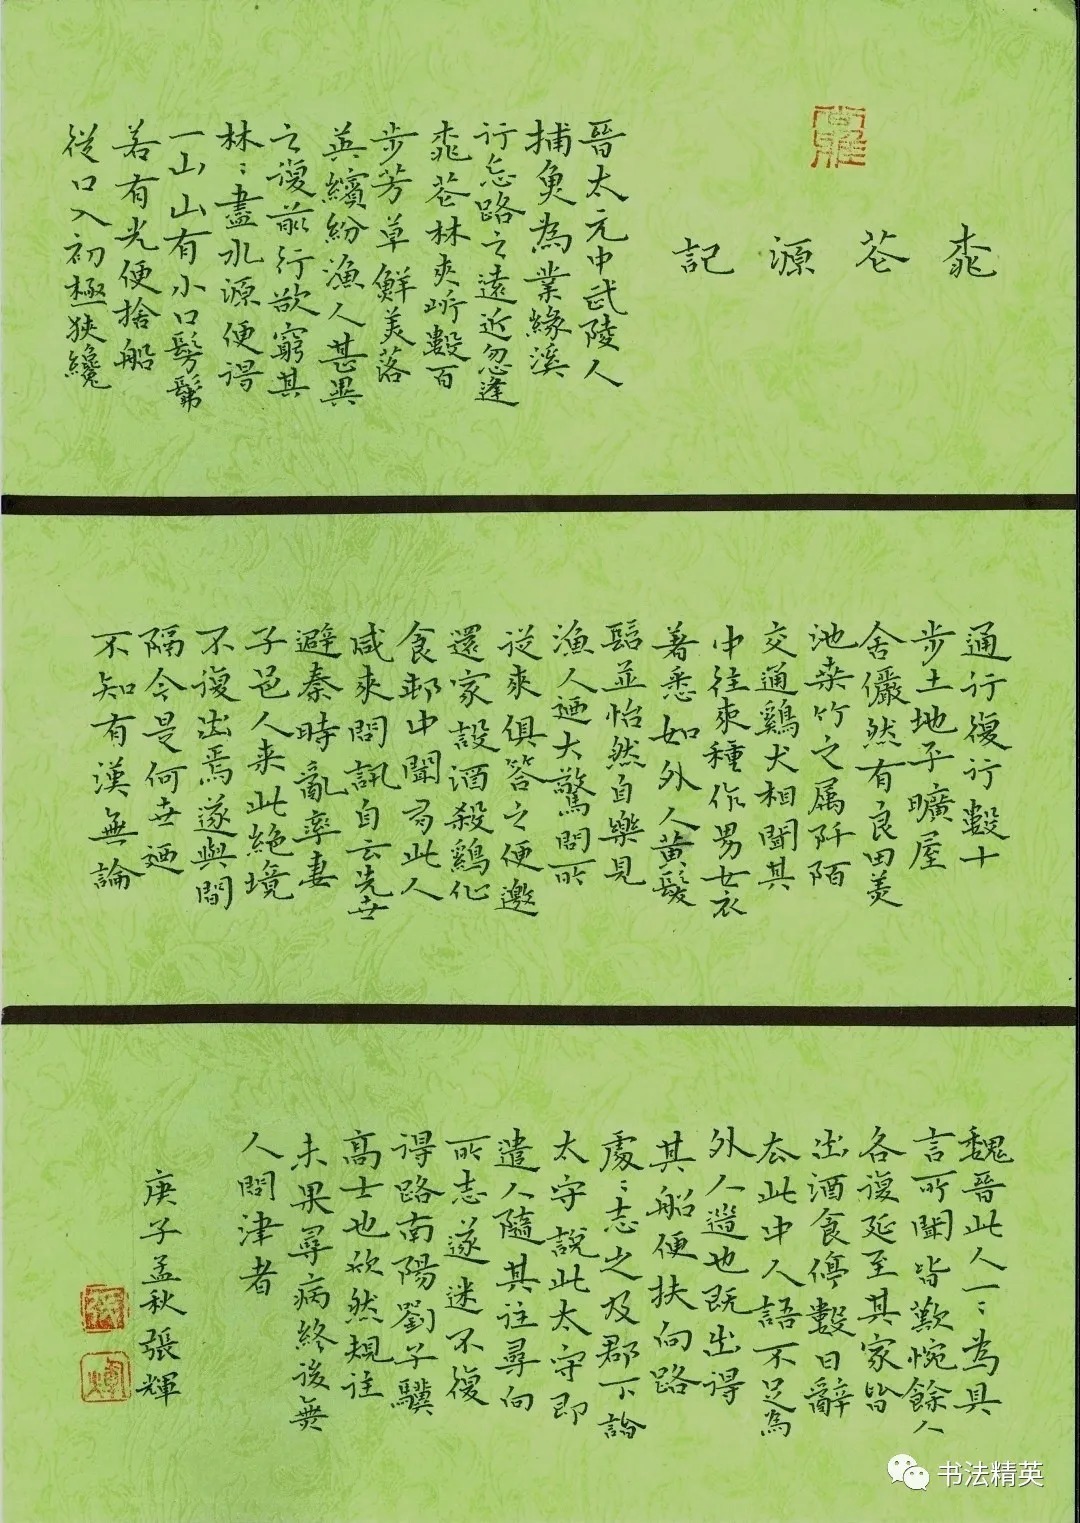 桃花源記
晉太元中武陵人
捕魚為業緣溪
行忘路之遠近忽逢
桃花林夾岍數百
步芳草鮮美落
英繽紛漁人甚異
之復前行欲窮其
林〻盡水源便得
一山山有小口髣髴
若有光便捨船
從口入初極狹纔
通行復行數十
步土地平曠屋
舍儼然有良田美
池桑竹之属阡陌
交通鷄犬相聞其
中往來種作男女衣
著悉如外人黃髮
髫並怡然自樂見
漁人迺大驚問所
從來俱答之便邀
還家設酒殺鷄作
食邨中聞有此人
咸來問訊自云先世
避秦時亂率妻
子邑人来此絕境
不復出焉遂與間
隔今是何世迺
不知有漢無論
魏晉此人一〻為具
言所聞皆歎惋餘人
各復延至其家皆
出酒食停數日辭
去此中人語不足為
外人道也既出得
其船便扶向路
處〻志之及郡下詣
太守說此太守即
遣人隨其往尋向
所志遂迷不復
得路南陽劉子驥
高士也欣然規往
未果尋病終後無
人問津者
庚子孟秋張輝
張
輝
书法精英